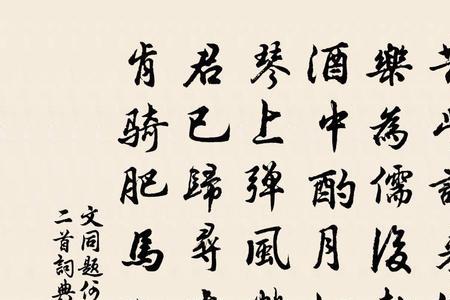 樂為儒後
酒中酌月
琴上弹風
君已歸尋
肯騎肥馬
文同題
二首詞典